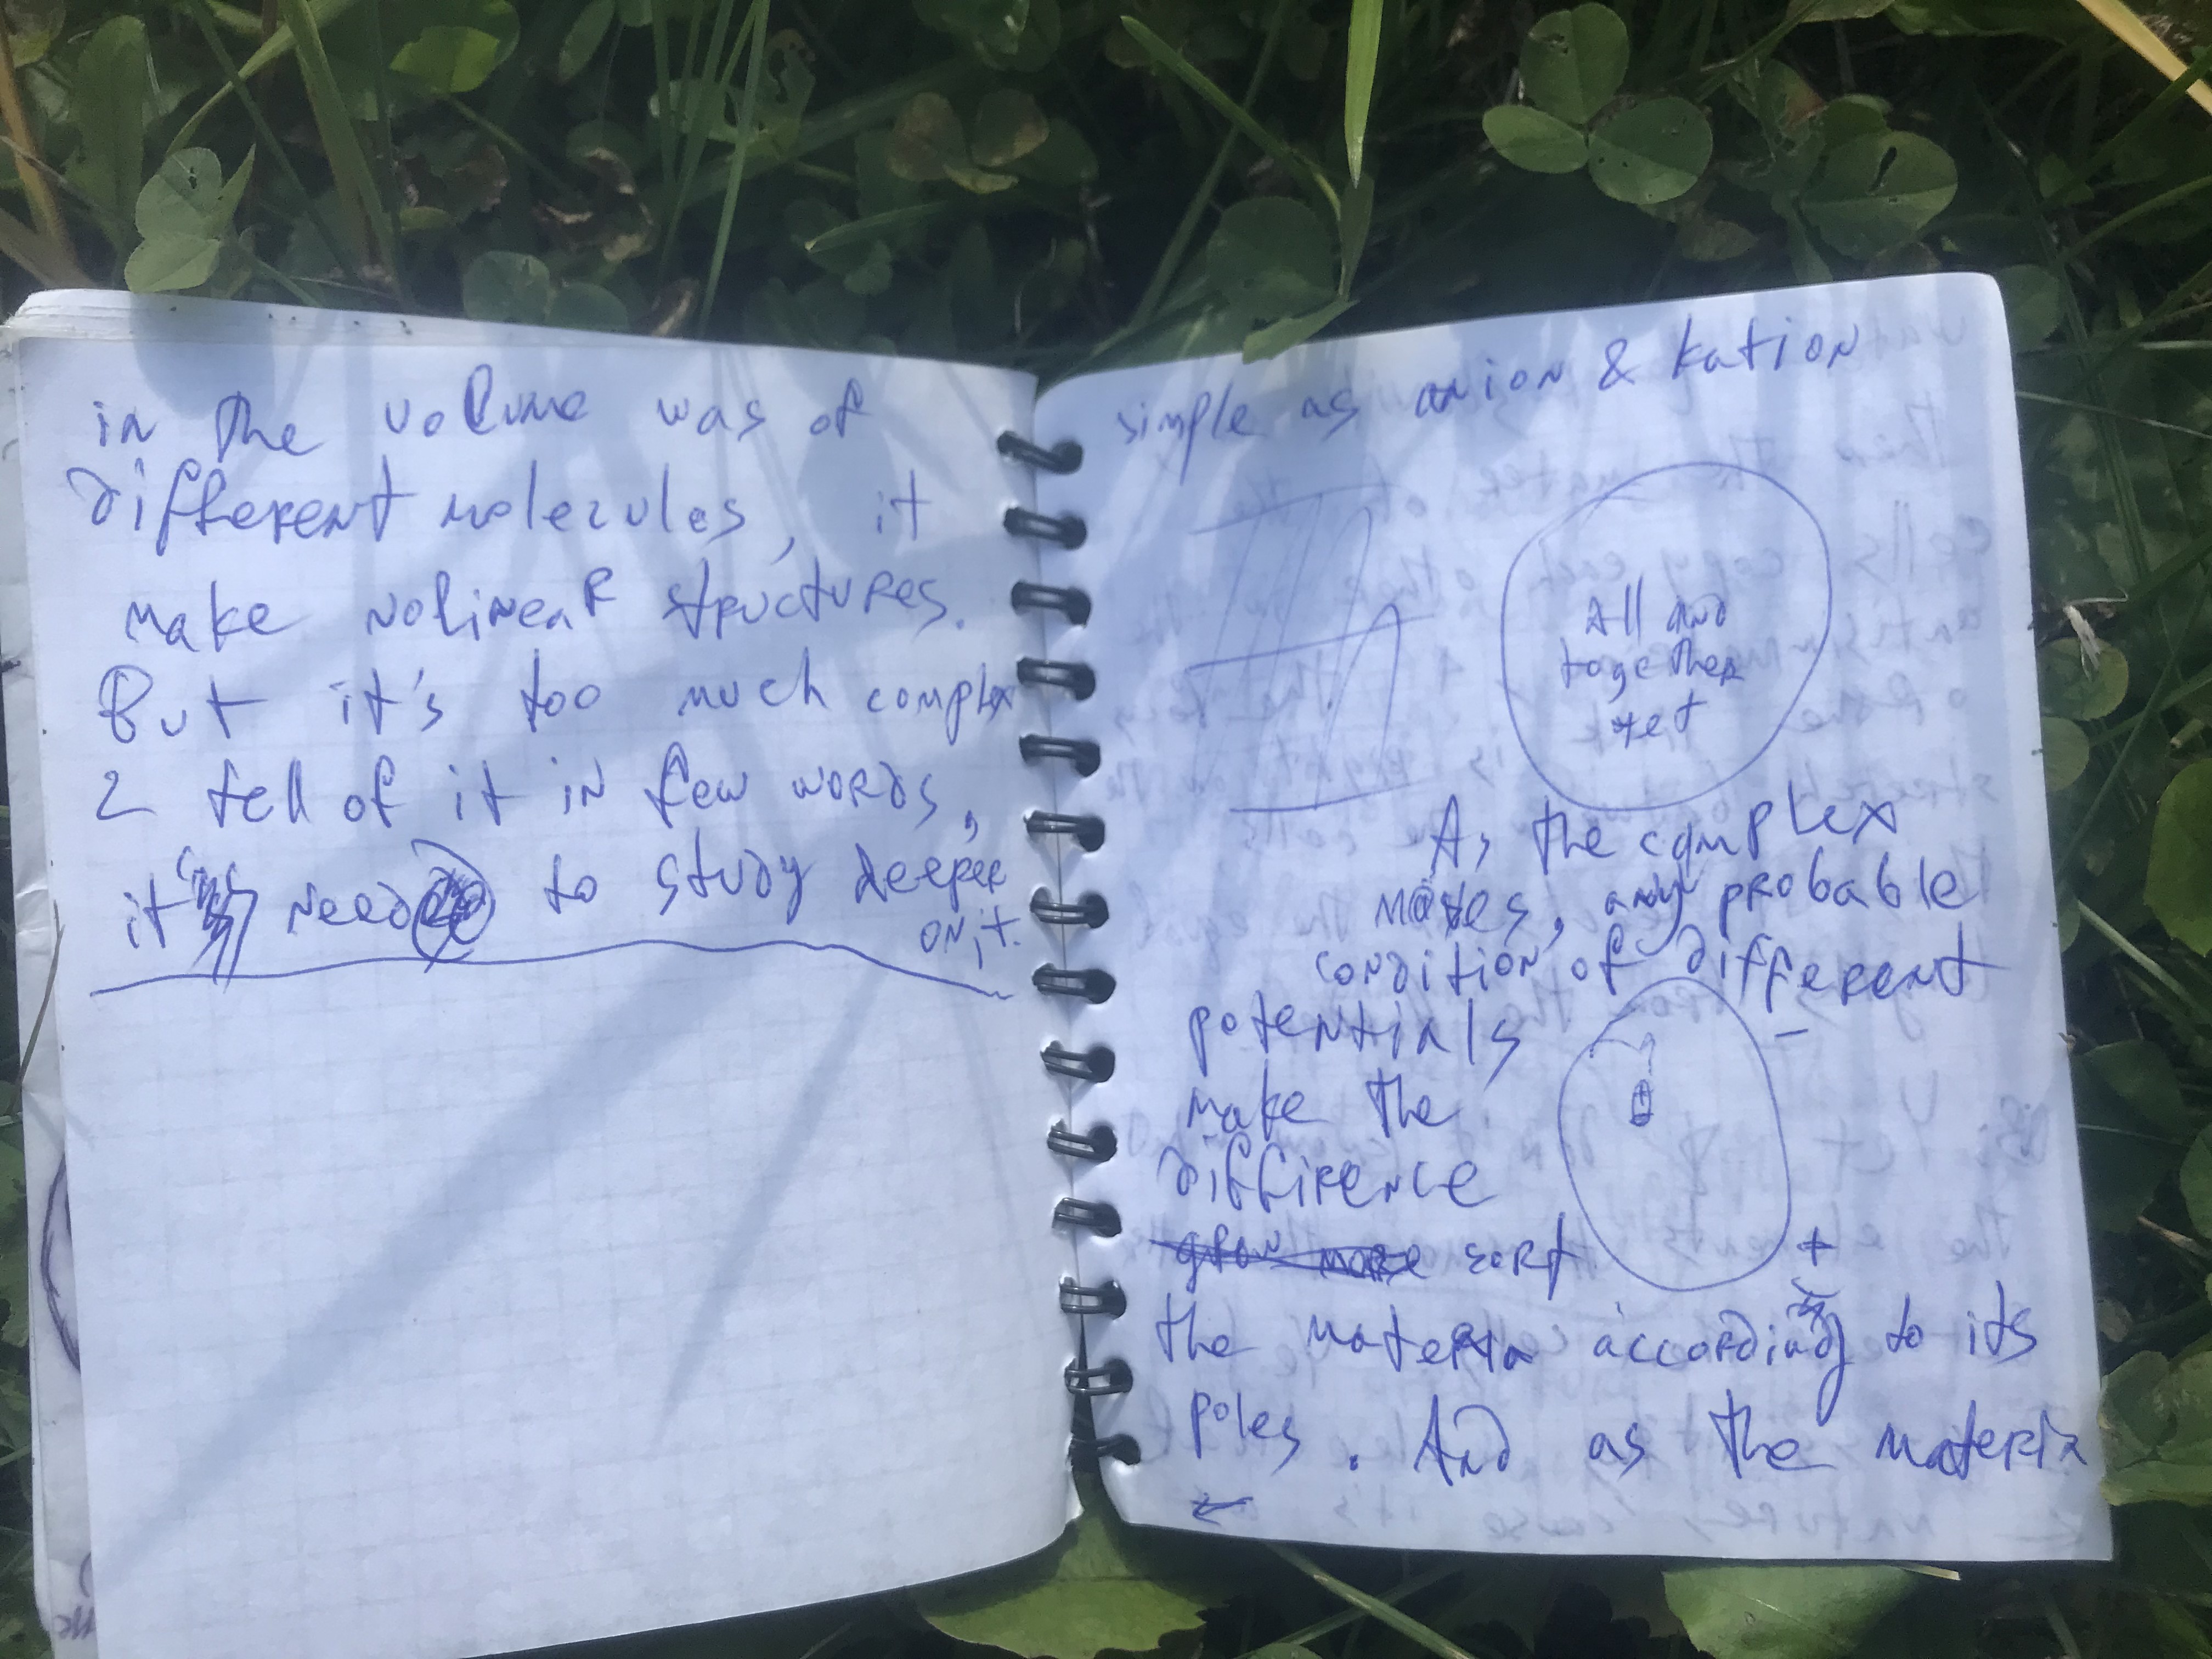 in the volume was of
different molecules it
make nolinear structures.
But it's too much complex
2 tell of it in few words,
it need to study deeper
on it.
simple as anion & kation
All and
together
As the complex
makes any probable
condition, of different
potentials
make the
difference
sort
-
+
the materia according to its
poles. And as the materia